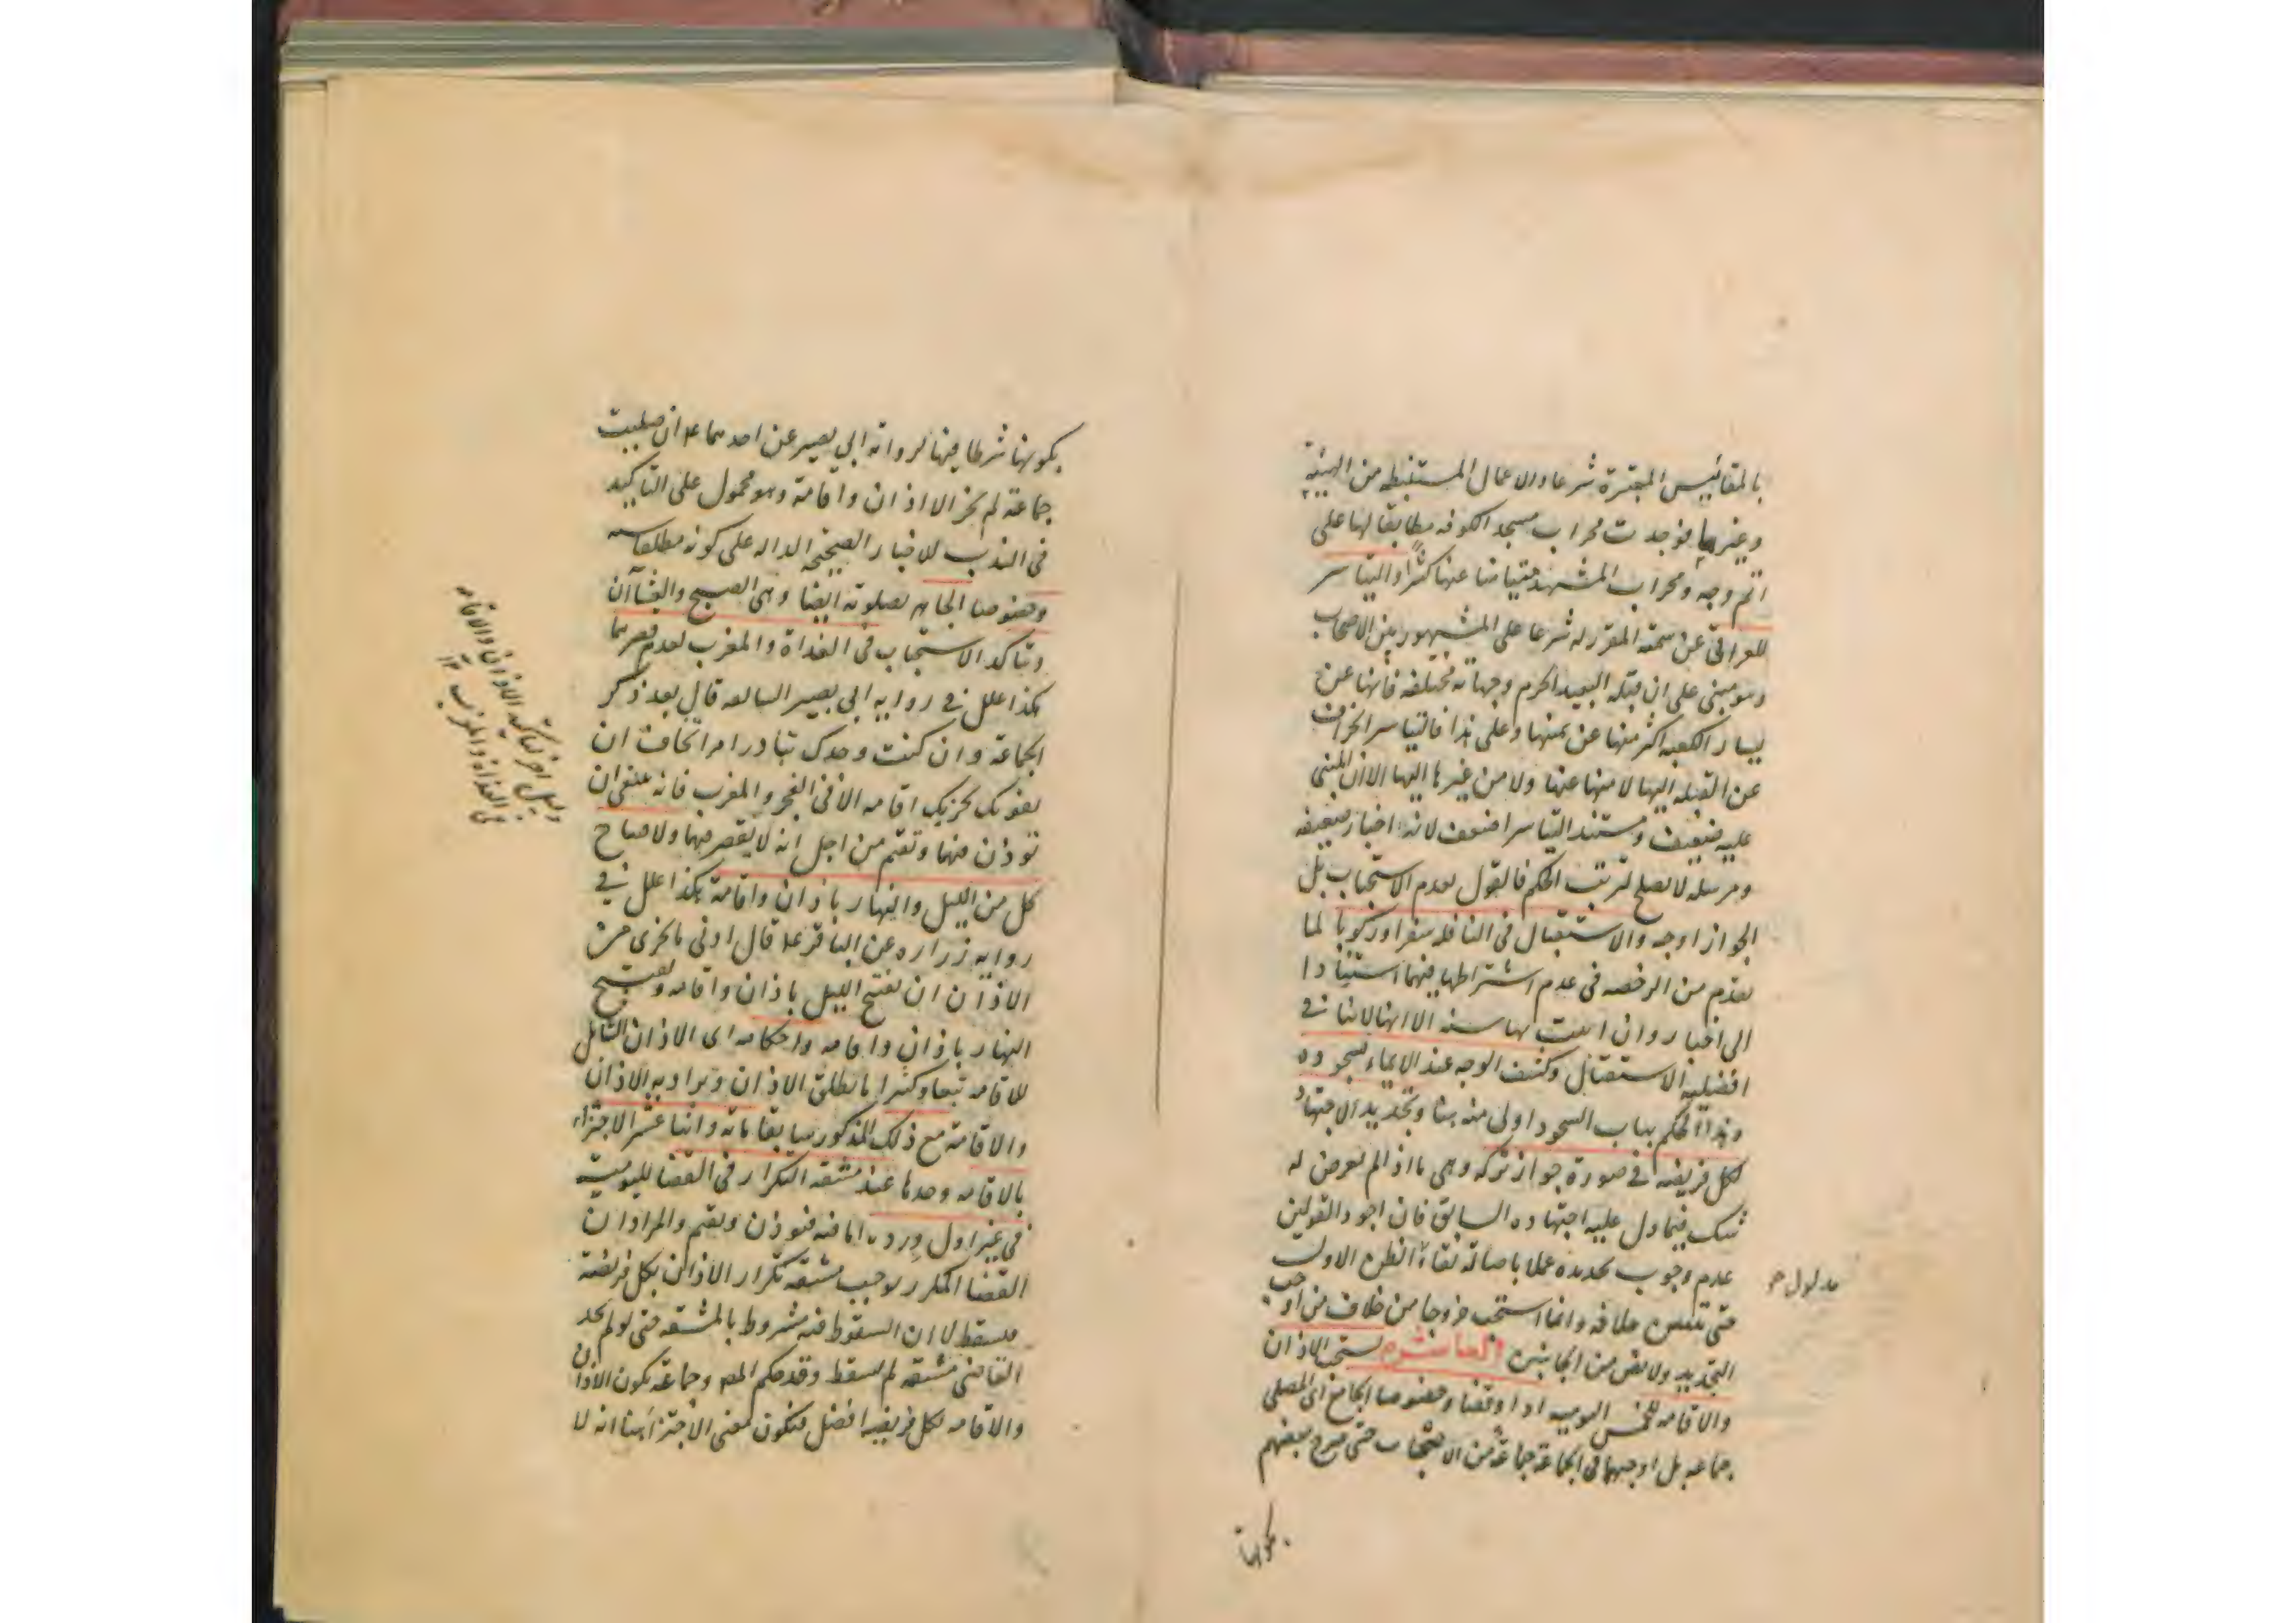 بالمقائيس المعتبرة شرعا والاعمال المستنبطه من الهيئة
وغيرها فوجدت محراب مسجد الكوفه مطابقا لها على
اتم وجه ومحراب المشهد متياسرا عنها كثيرا والتياسر
للعراقي عن سمته المقرر له شرعا على المشهور بين الاصحاب
وهو مبني على ان قبلة البعيد الحرم وجهاته مختلفه فانها عن
يسار الكعبه اكثر منها عن يمينها وعلى هذا فالتياسر انحراف
عن القبله اليها لا منها عنها ولا من غيرها اليها الا ان المبنى
عليه ضعيف ومستند التياسر اضعف لانه اخبار ضعيفه
ومرسله لا يصلح لترتب الحكم فالقول بعدم الاستحباب بل
الجواز اوجه والاستقبال في النافلة سفرا وركوبا لما
تقدم من الرخصه في عدم اشتراطها فيهما استنادا
الى اخبار وان ابيحت بها سنه الا انها لا تنافي
افضليه الاستقبال وكشف الوجه عند الايماء بسجوده
وهذا الحكم بباب السجود اولى منه هنا وتجديد الاجتهاد
لكل فريضه في صورة جواز تركه وهي ما اذا لم يعرض له
شك فيما دل عليه اجتهاده السابق فان اجود القولين
عدم وجوب تجديده عملا باصالة بقاء الظن الاول
مدلول
حتى يتبين خلافه وانما استحب خروجا من خلاف من اوجب
التجديد ولا نص من الجانبين يستحب الاذان
والاقامه للخمس اليوميه اداء وقضاء وخصوصا الجامع اي المصلي
جماعه بل اوجبهما في الجماعة جماعة من الاصحاب حتى صرح بعضهم
بكونها
بكونها شرطا فيها لرواية ابي بصير عن احدهما ع ان صليت
جماعة لم يجز الا اذان واقامة وهو محمول على التاكيد
في الندب للاخبار الصحيحه الداله على كونه مطلقا سنه
وخصوصا الجاهر بصلوته ايضا وهي الصبح والعشاآن
وتاكد الاستحباب في الغداة والمغرب لعدم قصرهما
هكذا علل في روايه ابي بصير السابقه قال بعد ذكر
الجماعة وان كنت وحدك تبادر امرا تخاف ان
يفوتك يجزيك اقامه الا في الفجر والمغرب فانه ينبغي ان
تؤذن فيهما وتقيم من اجل انه لا يقصر فيهما ولافتتاح
كل من الليل والنهار باذان واقامة هكذا علل في
روايه زراره عن الباقر ع قال ادنى ما يجزي من
الاذان ان تفتتح الليل باذان واقامه وتفتتح
النهار باذان واقامه واحكامه اي الاذان الشامل
للاقامه تبعا وكثيرا ما يطلق الاذان ويراد به الاذان
والاقامة مع ذلك المذكور سابقا مائة واثنا عشر الاجتزاء
بالاقامه وحدها عند مشقه التكرار في القضاء لليومية
في غير اول ورده اما فيه فيؤذن ويقيم والمراد ان
القضاء المكرر يوجب مشقه تكرار الاذان لكل فريضة
فيسقط لا ان السقوط فيه مشروط بالمشقه حتى لو لم يجد
القاضي مشقه لم يسقط وقد حكم المص وجماعة بكون الاذان
والاقامه لكل فريضه افضل فيكون معنى الاجتزاء هنا انه لا
دليل اخر لتاكيد الاذان والاقامه
في الغداة والمغرب ١٢